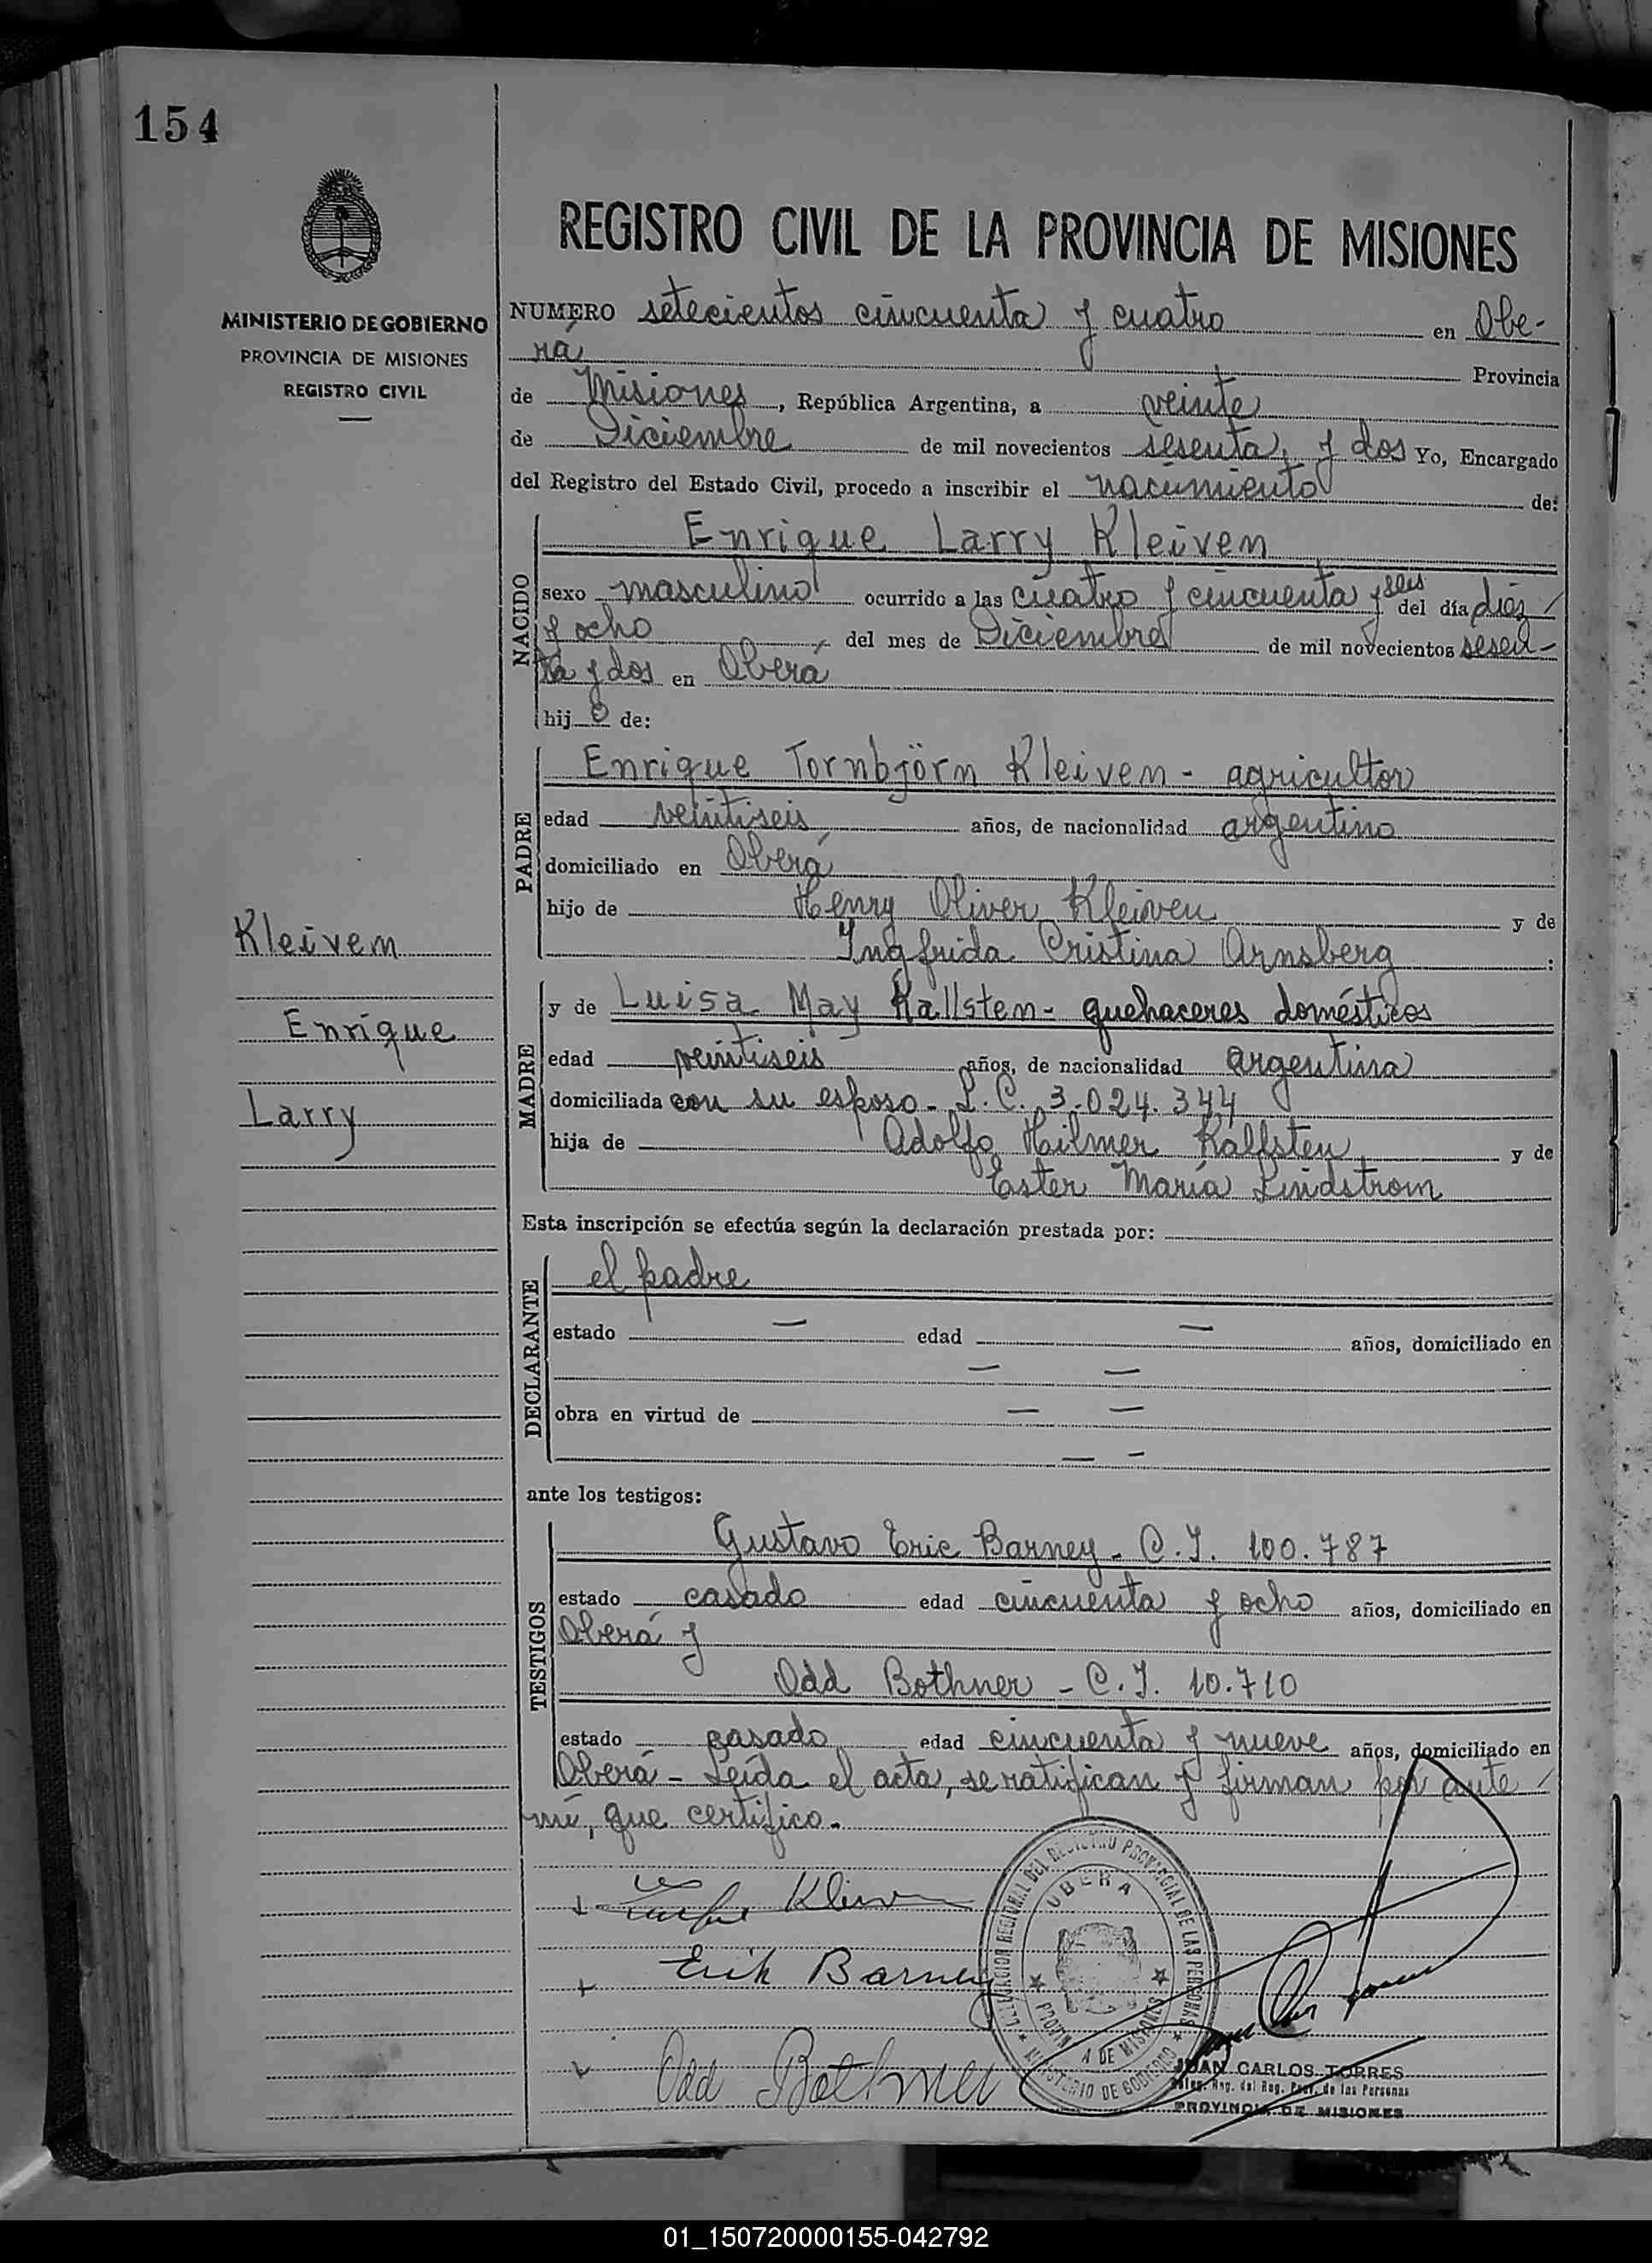 154
MINISTERIO DE GOBIERNO
PROVINCIA DE MISIONES
REGISTRO CIVIL
REGISTRO CIVIL DE LA PROVINCIA DE MISIONES
NUMERO setecientos cincuenta y cuatro en Obe-
rá Provincia
de Misiones, República Argentina, a veinte
de Diciembre de mil novecientos sesenta y dos Yo, Encargado
del Registro del Estado Civil, procedo a inscribir el nacimiento de:
NACIDO
Enrique Larry Kleiven
sexo masculino ocurrido a las cuatro y cincuenta y seis del día diez
y ocho del mes de Diciembre de mil novecientos sesen-
ta y dos en Oberá
hijo de:
PADRE
Enrique Tornbjörn Kleiven - agricultor
edad veintiseis años, de nacionalidad argentino
domiciliado en Oberá
hijo de Henry Oliver Kleiven y de
Ingfrida Cristina Arnsberg :
Kleiven
Enrique
Larry
MADRE
y de Luisa May Kallsten - quehaceres domésticos
edad veintiseis años, de nacionalidad argentina
domiciliada con su esposo - L.C. 3.024.344
hija de Adolfo Hilmer Kallsten y de
Ester María Lindstrom
Esta inscripción se efectúa según la declaración prestada por:
DECLARANTE
el padre
estado — edad — años, domiciliado en
— —
obra en virtud de — —
— -
ante los testigos:
TESTIGOS
Gustavo Eric Barney - C.I. 100.787
estado casado edad cincuenta y ocho años, domiciliado en
Oberá y
Odd Bothner - C.I. 10.710
estado casado edad cincuenta y nueve años, domiciliado en
Oberá - Leída el acta, se ratifican y firman por ante
mí, que certifico.
Kleiven
Erik Barney
Odd Bothner
DELEGACION REGIONAL DEL REGISTRO PROVINCIAL DE LAS PERSONAS
OBERA
MINISTERIO DE GOBIERNO
JUAN CARLOS TORRES
Deleg. Reg. del Reg. Prov. de las Personas
PROVINCIA DE MISIONES
01_150720000155-042792